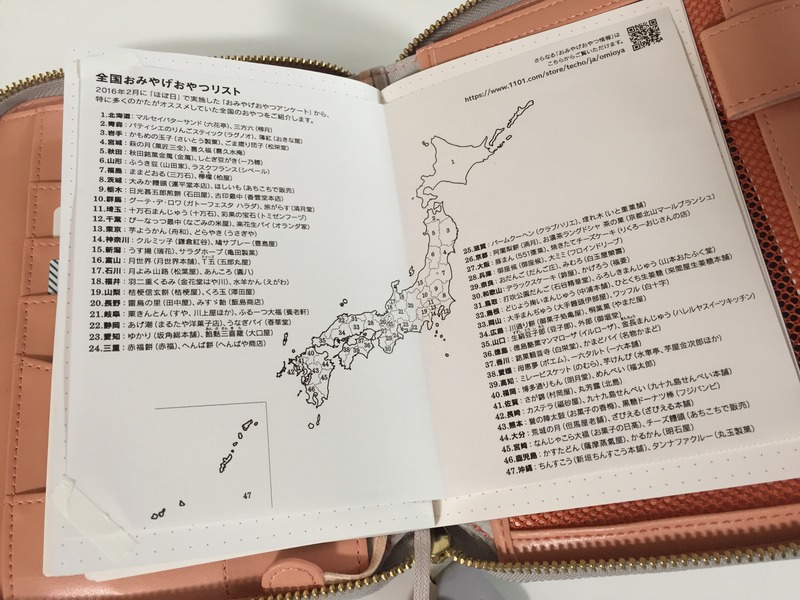 全国おみやげおやつリスト
2016年2月に「ほぼ日」で実施した「おみやげおやつアンケート」から、
特に多くのかたがオススメしていた全国のおやつをご紹介します。
1.北海道:マルセイバターサンド(六花亭)、三方六(柳月)
2.青森:パティシエのりんごスティック(ラグノオ)、薄紅(おきな屋)
3.岩手:かもめの玉子(さいとう製菓)、ごま摺り団子(松栄堂)
4.宮城:萩の月(菓匠三全)、喜久福(喜久水庵)
5.秋田:秋田銘菓金萬(金萬)、しとぎ豆がき(一乃穂)
6.山形:ふうき豆(山田家)、ラスクフランス(シベール)
7.福島:ままどおる(三万石)、檸檬(柏屋)
8.茨城:大みか饅頭(運平堂本店)、ほしいも(あちこちで販売)
9.栃木:日光甚五郎煎餅(石田屋)、古印最中(香雲堂本店)
10.群馬:グーテ・デ・ロワ(ガトーフェスタ ハラダ)、旅がらす(清月堂)
11.埼玉:十万石まんじゅう(十万石)、彩果の宝石(トミゼンフーヅ)
12.千葉:ぴーなっつ最中(なごみの米屋)、楽花生パイ(オランダ家)
13.東京:芋ようかん(舟和)、どらやき(うさぎや)
14.神奈川:クルミッ子(鎌倉紅谷)、鳩サブレー(豊島屋)
15.新潟:うす揚(瑞花)、サラダホープ(亀田製菓)
16.富山:月世界(月世界本舗)、T五(五郎丸屋)
17.石川:月よみ山路(松葉屋)、あんころ(圓八)
18.福井:羽二重くるみ(金花堂はや川)、水羊かん(えがわ)
19.山梨:桔梗信玄餅(桔梗屋)、くろ玉(澤田屋)
20.長野:雷鳥の里(田中屋)、みすゞ飴(飯島商店)
21.岐阜:栗きんとん(すや、川上屋ほか)、ふるーつ大福(養老軒)
22.静岡:あげ潮(まるたや洋菓子店)、うなぎパイ(春華堂)
23.愛知:ゆかり(坂角総本舗)、餡麩三喜羅(大口屋)
24.三重:赤福餅(赤福)、へんば餅(へんばや商店)
47
さらなる「おみやげおやつ情報」は
こちらからご覧いただけます。
https://www.1101.com/store/techo/ja/omioya
1
25.滋賀:バームクーヘン(クラブハリエ)、埋れ木(いと重菓舗)
26.京都:阿闍梨餅(満月)、お濃茶ラングドシャ 茶の菓(京都北山マールブランシュ)
27.大阪:豚まん(551蓬莱)、焼きたてチーズケーキ(りくろーおじさんの店)
28.兵庫:御座候(御座候)、大ミミ(フロインドリーブ)
29.奈良:おだんご(だんご庄)、みむろ(白玉屋榮壽)
30.和歌山:デラックスケーキ(鈴屋)、かげろう(福菱)
31.鳥取:打吹公園だんご(石谷精華堂)、ふろしきまんじゅう(山本おたふく堂)
32.島根:どじょう掬いまんじゅう(中浦本舗)、ひとくち生姜糖(來間屋生姜糖本舗)
33.岡山:大手まんぢゅう(大手饅頭伊部屋)、ワッフル(白十字)
34.広島:川通り餅(御菓子処亀屋)、桐葉菓(やまだ屋)
35.山口:生絹豆子郎(豆子郎)、外郎(御堀堂)
36.徳島:徳島銘菓マンマローザ(イルローザ)、金長まんじゅう(ハレルヤスイーツキッチン)
37.香川:銘菓観音寺(白栄堂)、かまどパイ(名物かまど)
38.愛媛:母恵夢(ポエム)、一六タルト(一六本舗)
39.高知:ミレービスケット(のむら)、芋けんぴ(水車亭、芋屋金次郎ほか)
40.福岡:博多通りもん(明月堂)、めんべい(福太郎)
41.佐賀:さが錦(村岡屋)、丸芳露(北島)
42.長崎:カステラ(福砂屋)、九十九島せんぺい(九十九島せんぺい本舗)
43.熊本:誉の陣太鼓(お菓子の香梅)、黒糖ドーナツ棒(フジバンビ)
44.大分:荒城の月(但馬屋老舗)、ざびえる(ざびえる本舗)
45.宮崎:なんじゃこら大福(お菓子の日高)、チーズ饅頭(あちこちで販売)
46.鹿児島:かすたどん(薩摩蒸氣屋)、かるかん(明石屋)
47.沖縄:ちんすこう(新垣ちんすこう本舗)、タンナファクルー(丸玉製菓)